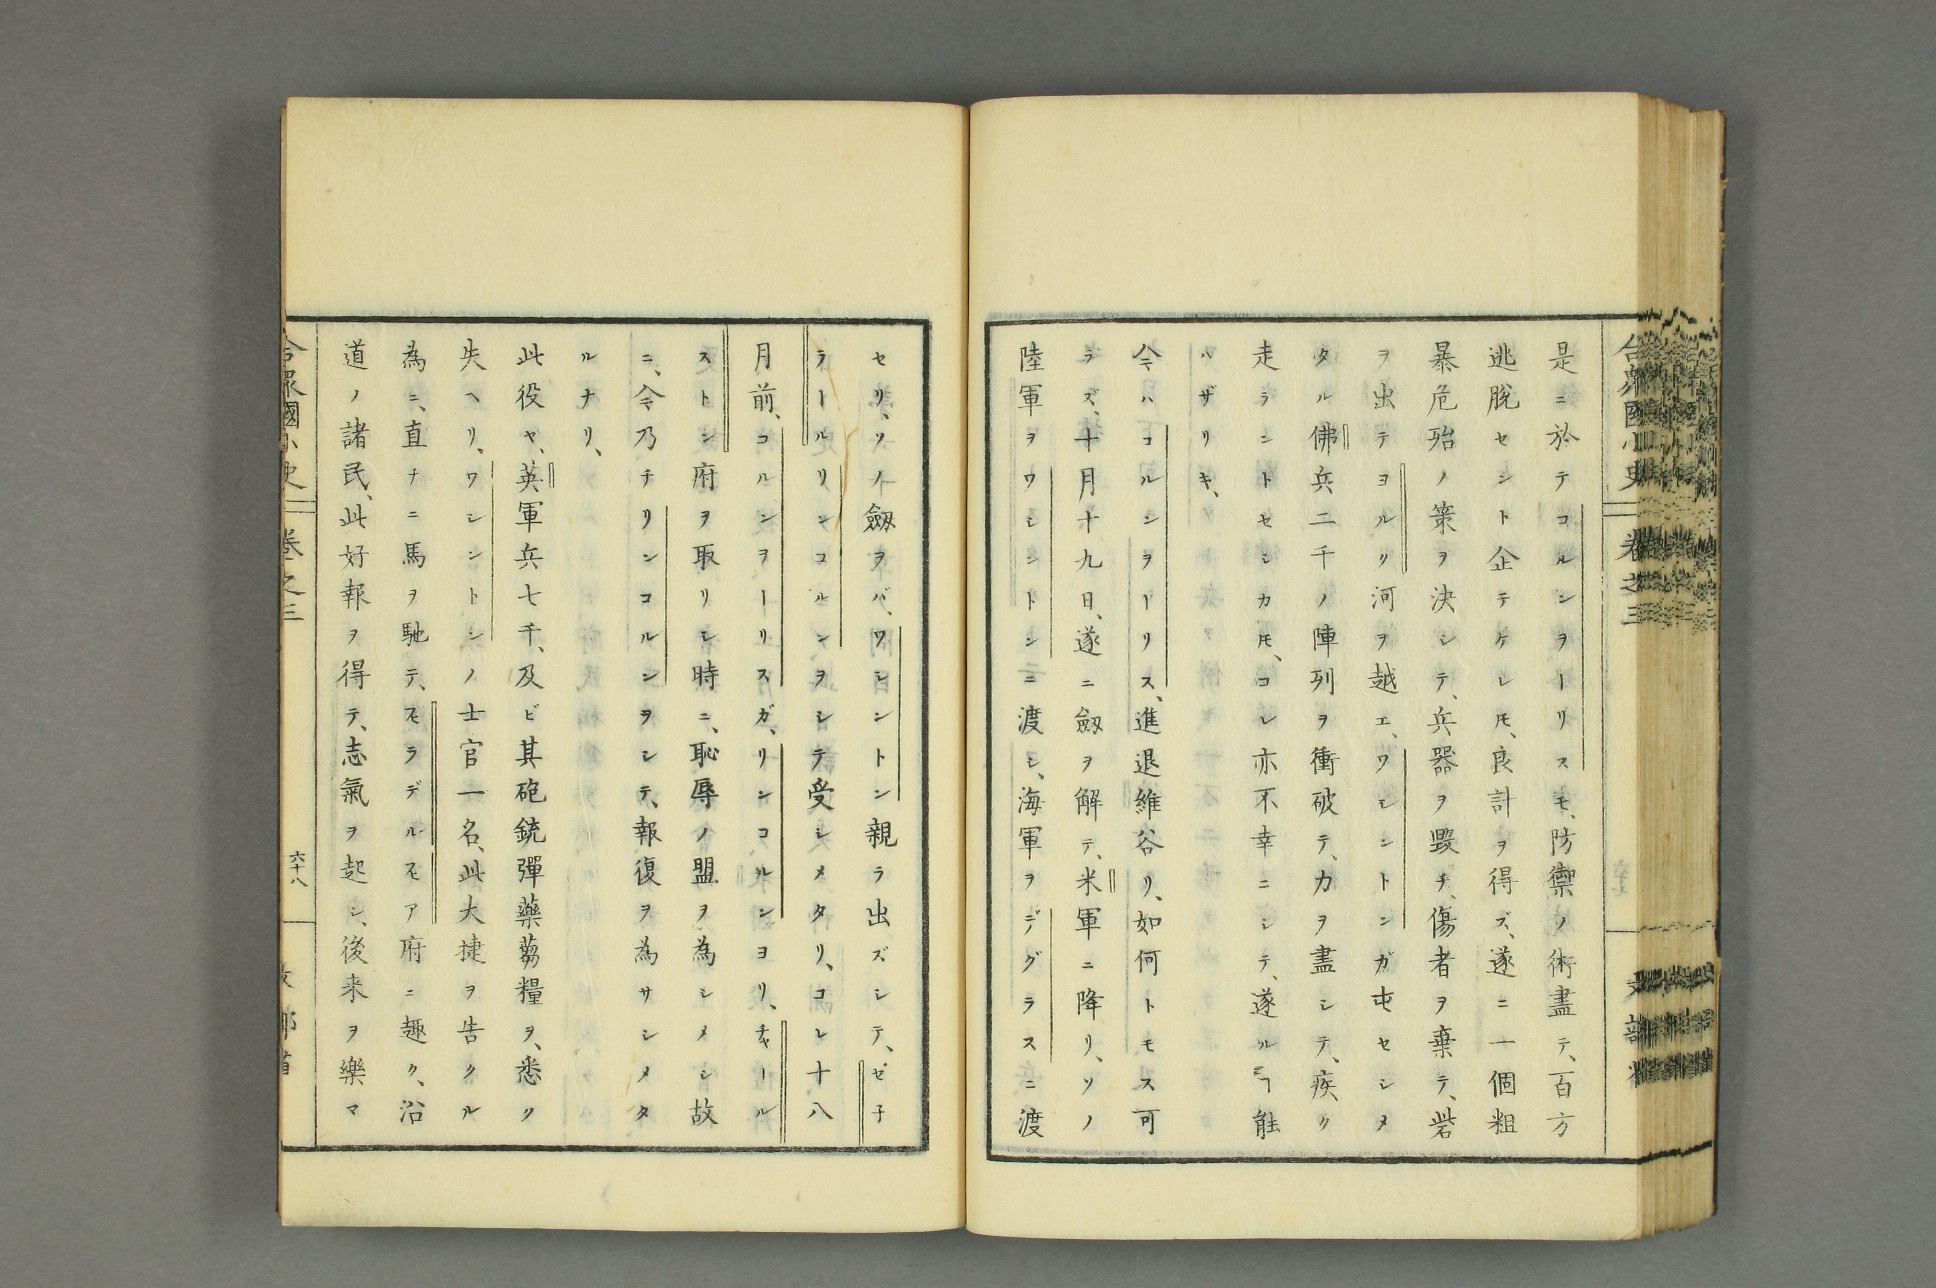 是ニ於テコルンヲーリスモ、防禦ノ術盡テ、百方
逃脱セント企テケレモ、良計ヲ得ズ、遂ニ一個粗
暴危殆ノ策ヲ決シテ、兵器ヲ毀チ、傷者ヲ棄テ、砦
ヲ出テヨルク河ヲ越エ、ワシントンガ屯セシメ
タル佛兵二千ノ陣列ヲ衝破テ、力ヲ盡シテ、疾ク
走ラントセシカ𪜈、コレ亦不幸ニシテ、遂ルヿ能
ハザリキ、
今ハコルンヲーリス、進退維谷リ、如何トモス可
ラズ、十月十九日、遂ニ劔ヲ解テ、米軍ニ降リ、ソノ
陸軍ヲワシントンニ渡シ、海軍ヲデグラスニ渡
セリ、ソノ劔ヲバ、ワシントン親ラ出ズシテ、ゼ子
ラールリンコルンヲシテ受シメタリ、コレ十八
月前、コルンヲーリスガ、リンコルンヨリ、チャール
ストン府ヲ取リシ時ニ、恥辱ノ盟ヲ為シメシ故
ニ、今乃チリンコルンヲシテ、報復ヲ為サシメタ
ルナリ、
此役ヤ、英軍兵七千、及ビ其砲銃彈藥蒭糧ヲ、悉ク
失ヘリ、ワシントンノ士官一名、此大捷ヲ告クル
為ニ、直ナニ馬ヲ馳テ、ヒラデルヒア府ニ趣ク、沿
道ノ諸民、此好報ヲ得テ、志氣ヲ起シ、後来ヲ樂マ
合衆國小史 巻之三
六十八